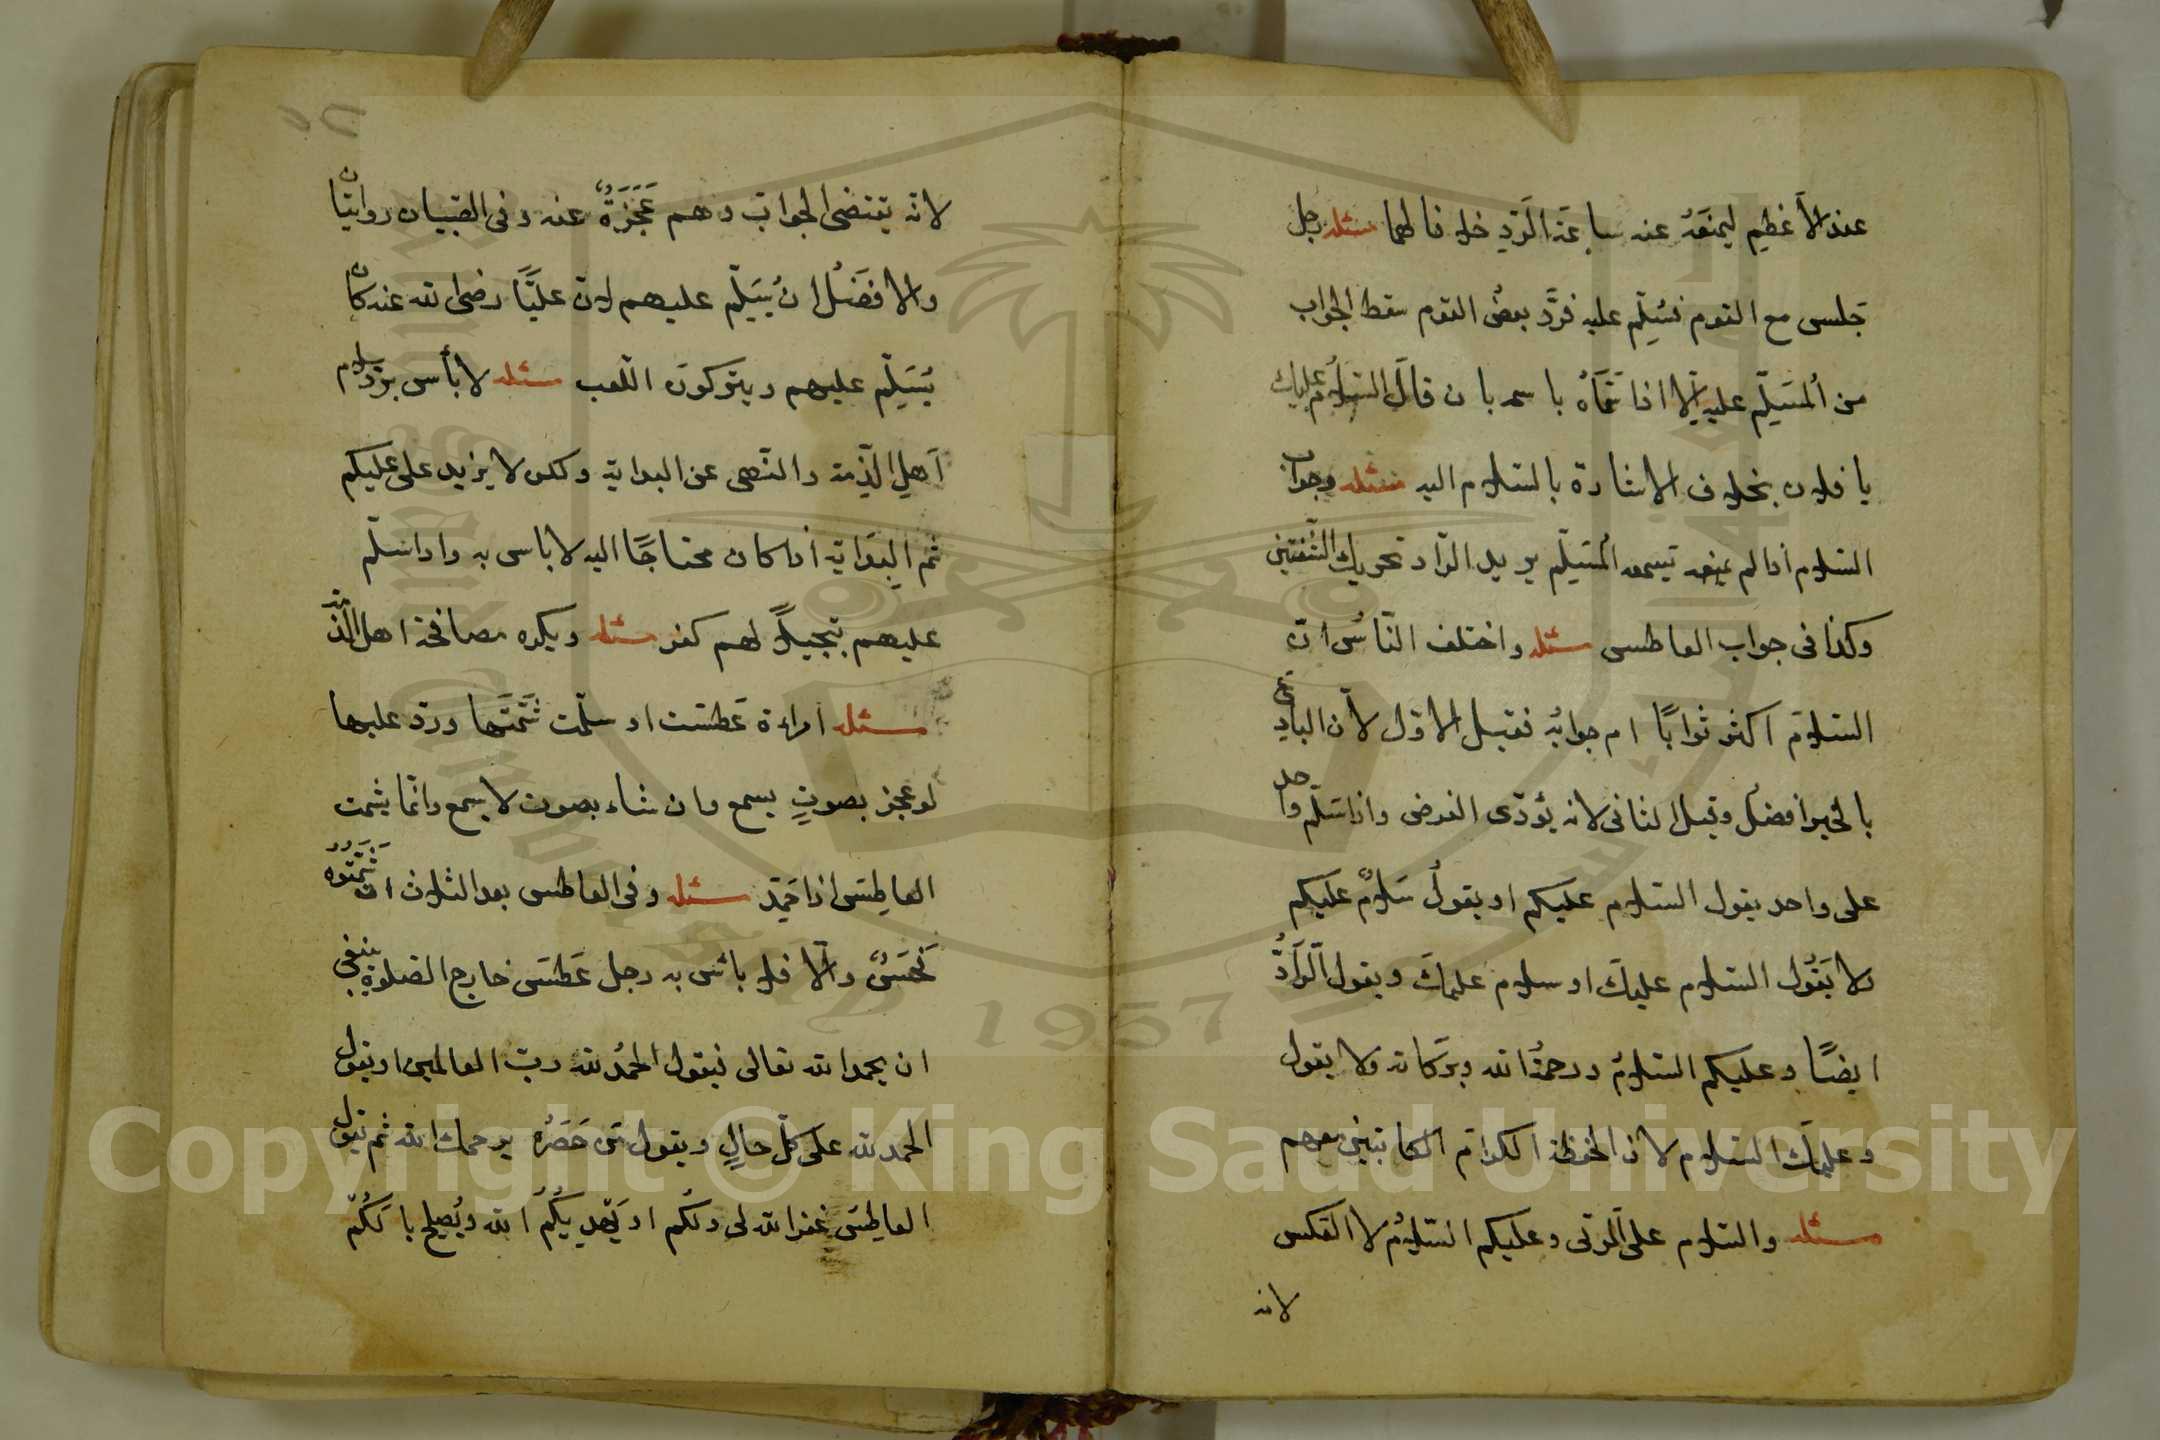 عند الأعظم ليمنعه عنه ساعة الرد خلافا لهما مسئله رجل
جلس مع القوم فسُلّم عليه فردَّ بعضُ القوم سقط الجواب
من المسَلّم عليه إلّا اذا سَمَّاهُ باسمه بان قال السلام عليك
يا فلان بخلاف الاشارة بالسلام اليه مسئله وجواب
السلام اذا لم يسمعه المُسَلِّم يريد الرّاد تحريك الشفتين
وكذا فى جواب العاطس مسئله واختلف النّاسُ انّ
السّلامَ اكثر ثوابًا ام جوابُه فقيل الاوّل لأن البادِى
بالخير افضلُ وقيل الثانى لانه يُؤدّى الفرض واذا سَلّم واحد
على واحد يقول السلام عليكم او يقولُ سَلامٌ عليكم
ولا يَقُول السّلام عليكَ او سلام عليكَ ويقول الرّادُّ
ايضًا وعليكم السّلامُ ورحمةُ الله وبركاته ولا يقول
وعليكَ السّلام لان الحفظة الكرامَ الكاتبين معهم
مسئله والسّلام على المَوتى وعليكم السّلامُ لا العكس
لانه
لانه يقتضى الجوابَ وهم عَجَزَةٌ عنه وفى الصّبيان روايتان
والافضَلُ انْ يُسَلِّم عليهم لانّ عليًّا رضى الله عنه كان
يُسَلِّم عليهم ويتركونَ اللّعب مسئله لا بأس بردّ سلام
اَهلِ الذّمة والنّهى عن البداية ولكن لا يزيد على عليكم
ثم البِدَاية اذا كان محتاجًا اليه لا باس به واذا سَلّم
عليهم تبجيلًا لهم كفر مسئله ويكره مصافحة اهل الذّمة
مسئله امراءة عَطسَت او سلّمت شَمَّتَها وردّ عليها
لو عجز بصوتٍ يسمع وان شاء بصوت لا يسمع وانّما يشمت
العاطِسَ اذا حَمِدَ مسئله وفى العاطس بعد الثلاث ان شَمَّتُوهُ
فحَسَنٌ والّا فلا بأس به رجل عَطَسَ خارج الصّلوة ينبغى
ان يحمد الله تعالى فيقول الحمدُ لله ربّ العالمين او يقول
الحمد لله على كلّ حالٍ ويقول مَن حَضَرَهُ يرحمك الله ثم يقول
العاطِس غفر الله لى ولكُم او يَهدِيكُم الله ويُصلِح بالَكُم
Copyright © King Saud University
1957